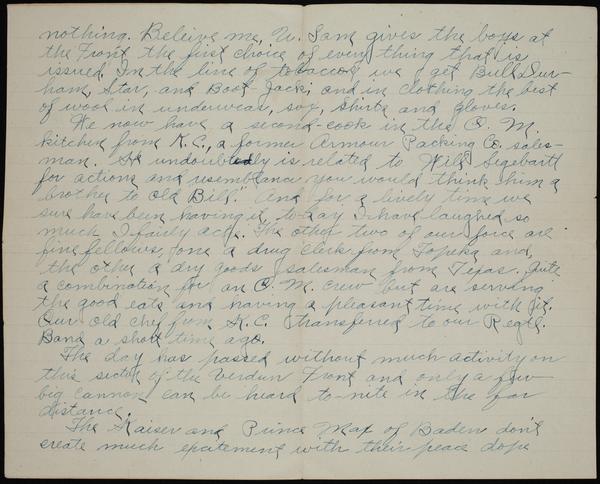 nothing. Beleive me, U. Sam gives the boys at
the Front the first choice of every thing that is
issued. In the line of tobaccos we get Bull Dur-
ham, Star, and Boot-Jack; and in clothing the best
of wool in underwear, sox, shirts and gloves.
We now have a second-cook in this O. M.
kitchen from K.C., a former Armour Packing Co. sales-
man. He undoubtedly is related to Will
for actions and resemblance you would think him a
brother to Old Bill." And for a lively time we
sure have been having it, to-day I have laughed so
much I fairly ache. The other two of our force are
fine fellows, one a drug clerk from Topeka and,
the other a dry goods salesman from Texas. Quite
a combination for an O. M. crew but are serving
the good eats and having a pleasant time with it.
Our old chef from K.C. transferred to our Regtl.
Band a short time ago.
The day has passed without much activity on
this sector of the Verdun Front and only a few
big cannon can be heard to-nite in the far
distance.
The Kaiser and Prince Max of Baden don't
create much excitement with their peace dope